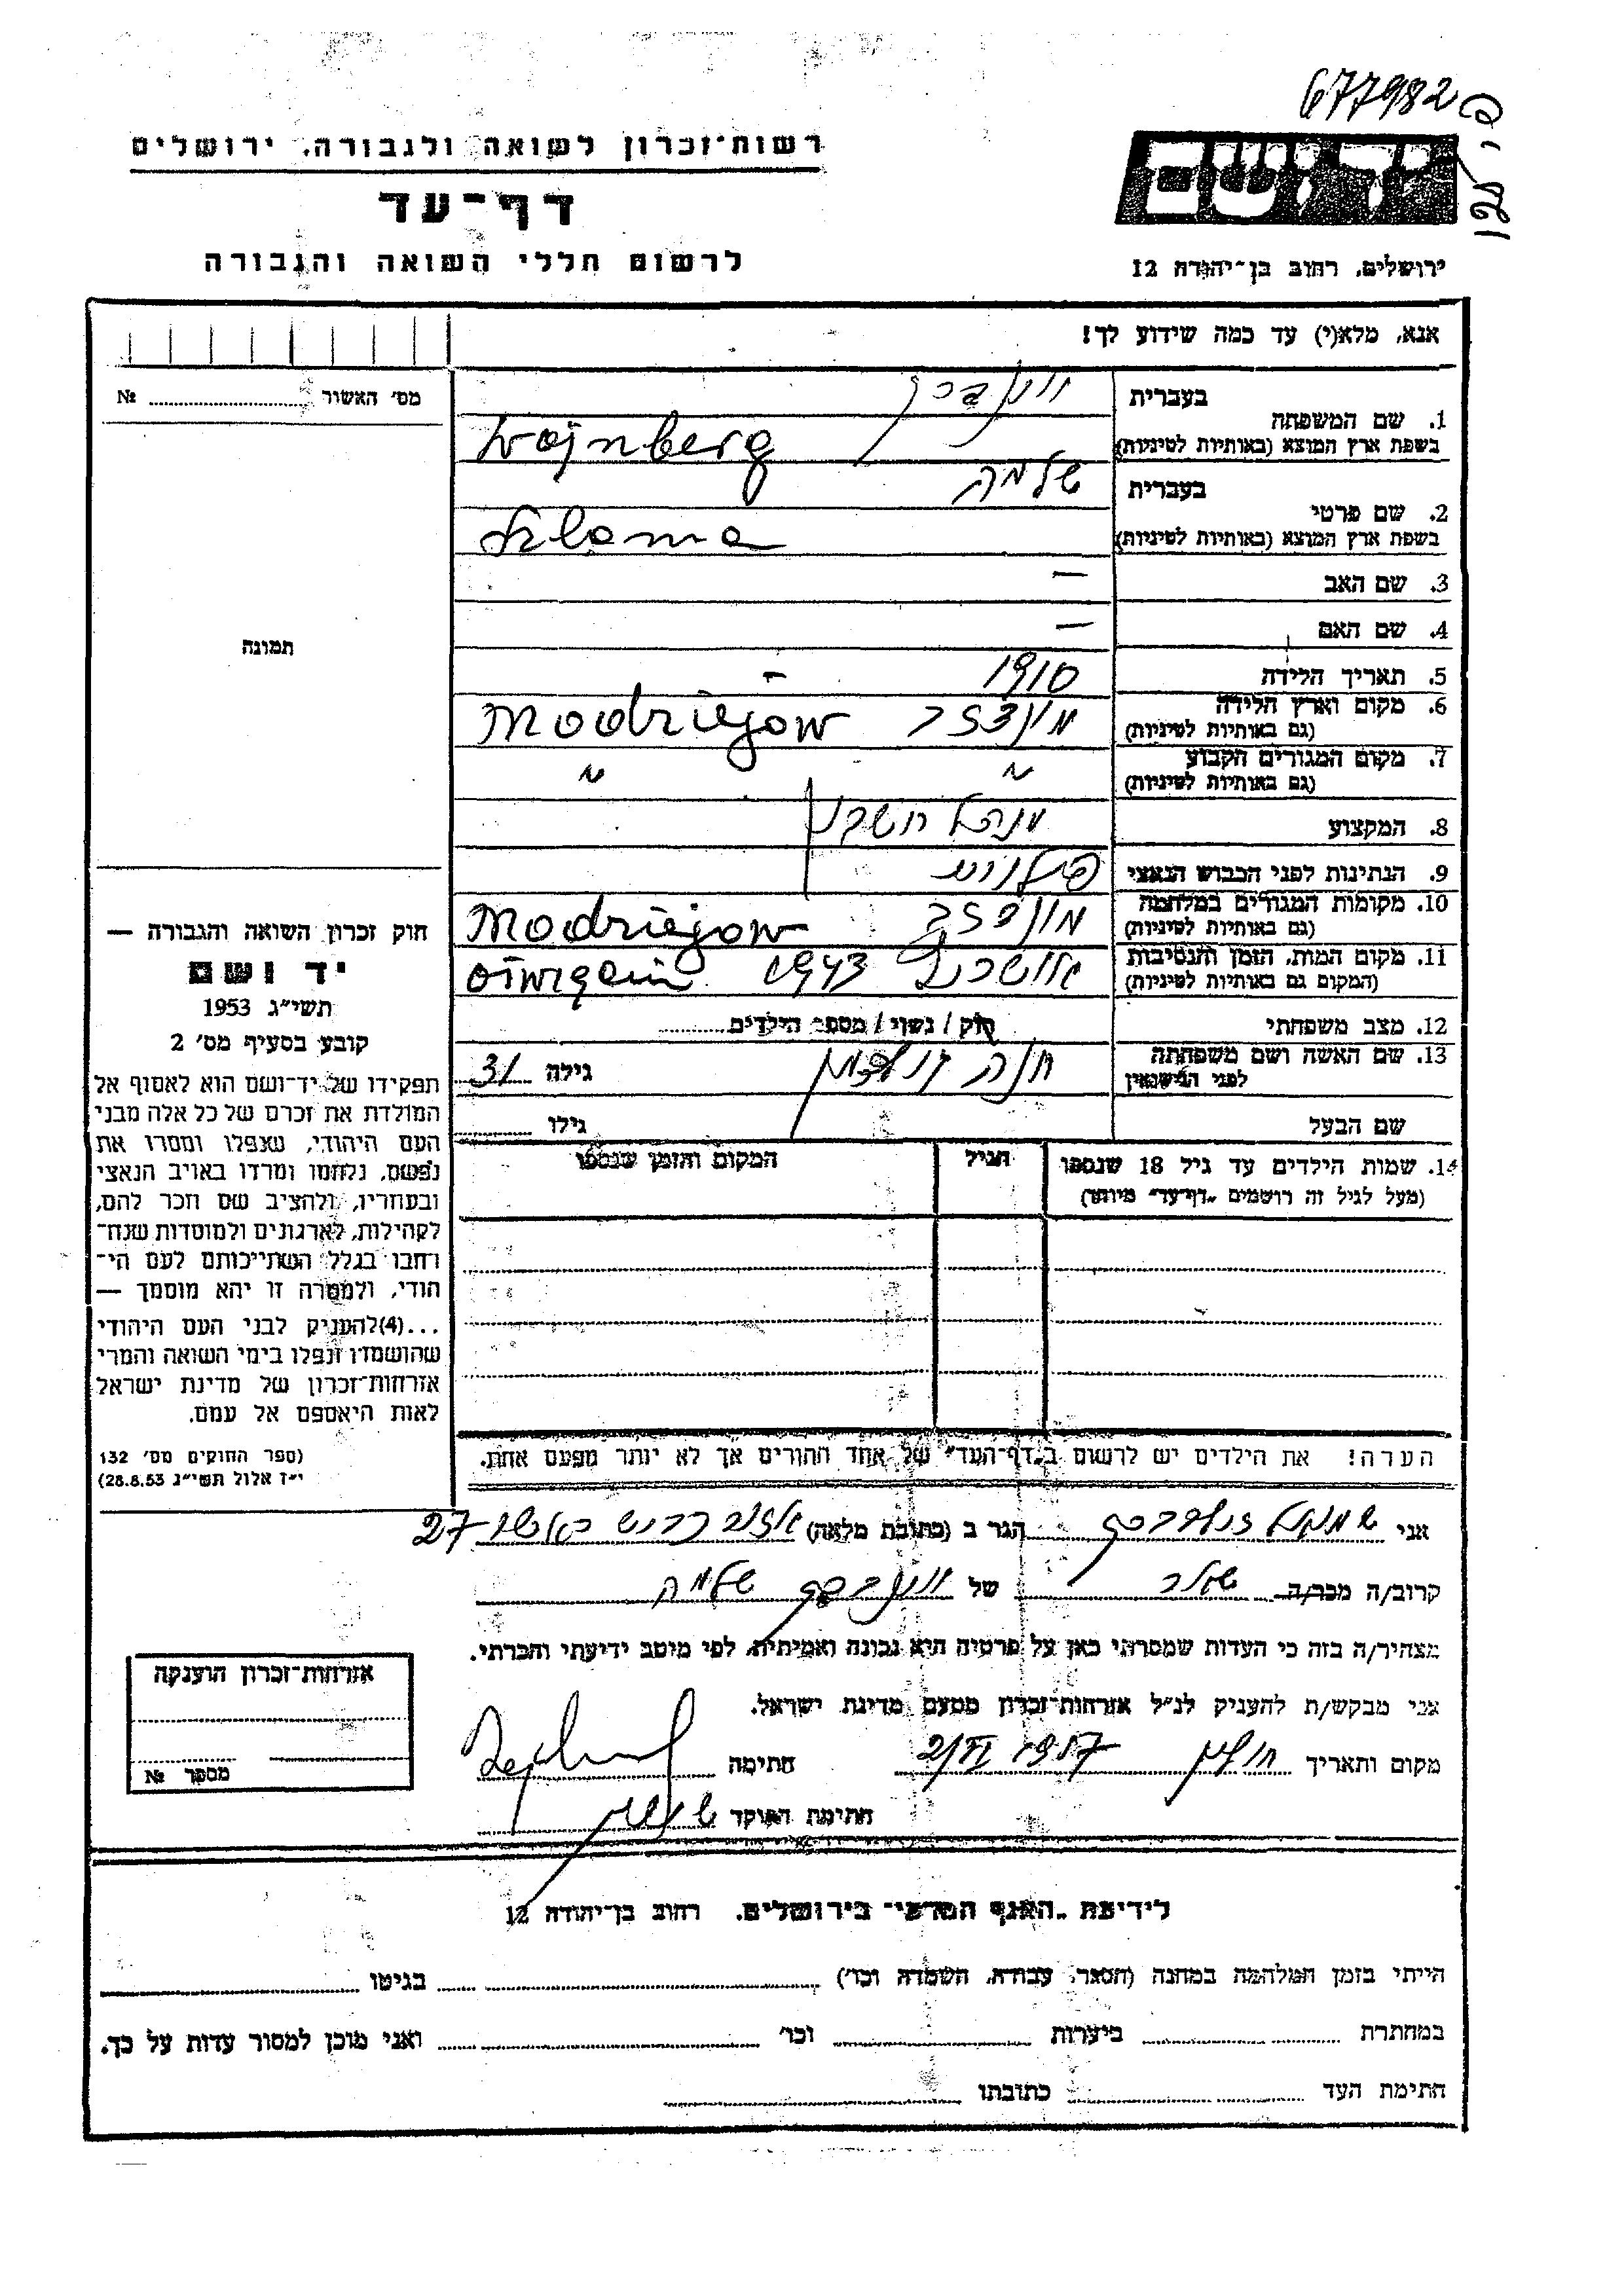 677982
רשות-זכרון לשואה ולגבורה, ירושלים
דף-עד
לרשום חללי השואה והגבורה
יד ושם
ירושלים, רחוב בן-יהודה 12
אנא, מלא(י) עד כמה שידוע לך!
מס׳ האשור № 
1. שם המשפחה בעברית
בשפת ארץ המוצא (באותיות לטיניות) Wajnberg
2. שם פרטי בעברית שלמה
בשפת ארץ המוצא (באותיות לטיניות) Szlama
3. שם האב —
4. שם האם —
5. תאריך הלידה 1910
6. מקום וארץ הלידה
(גם באותיות לטיניות) Modrzejow
7. מקום המגורים הקבוע
(גם באותיות לטיניות) " "
8. המקצוע מנהל חשבון
9. הנתינות לפני הכבוש הנאצי
10. מקומות המגורים במלחמה
(גם באותיות לטיניות) Modrzejow
11. מקום המות, הזמן והנסיבות
(המקום גם באותיות לטיניות) 1943 Oświęcim
12. מצב משפחתי רוק / נשוי / מספר הילדים
13. שם האשה ושם משפחתה
לפני הנישואין חנה גילה 31
שם הבעל גילו
14. שמות הילדים עד גיל 18 שנספו
(מעל לגיל זה רושמים „דף-עד" מיוחד)
הגיל
המקום והזמן שנספו
הערה! את הילדים יש לרשום ב„דף-העד" של אחד ההורים אך לא יותר מפעם אחת.
תמונה
חוק זכרון השואה והגבורה —
יד ושם
תשי״ג 1953
קובע בסעיף מס׳ 2
תפקידו של יד-ושם הוא לאסוף אל
המולדת את זכרם של כל אלה מבני
העם היהודי, שנפלו ומסרו את
נפשם, נלחמו ומרדו באויב הנאצי
ובעוזריו, ולהציב שם וזכר להם,
לקהילות, לארגונים ולמוסדות שנח-
רחבו בגלל השתייכותם לעם הי-
הודי, ולמטרה זו יהא מוסמך —
...(4)להעניק לבני העם היהודי
שהושמדו ונפלו בימי השואה והמרי
אזרחות-זכרון של מדינת ישראל
לאות היאספם אל עמם.
(ספר החוקים מס׳ 132
י״ז אלול תשי״ג 28.8.53)
אני הגר ב (כתובת מלאה) 27
קרוב/ה מכר/ה של שלמה
מצהיר/ה בזה כי העדות שמסרתי כאן על פרטיה היא נכונה ואמיתית, לפי מיטב ידיעתי והכרתי.
אני מבקש/ת להעניק לנ״ל אזרחות-זכרון מטעם מדינת ישראל.
מקום ותאריך חולון 2/VI 1957 חתימה
חתימת הפוקד
אזרחות-זכרון הוענקה
מספר №
לידיעת „האגף המדעי" בירושלים, רחוב בן-יהודה 12
הייתי בזמן המלחמה במחנה (הסגר, עבודה, השמדה וכו׳) בגיטו
במחתרת ביערות וכו׳ ואני מוכן למסור עדות על כך.
חתימת העד כתובתו